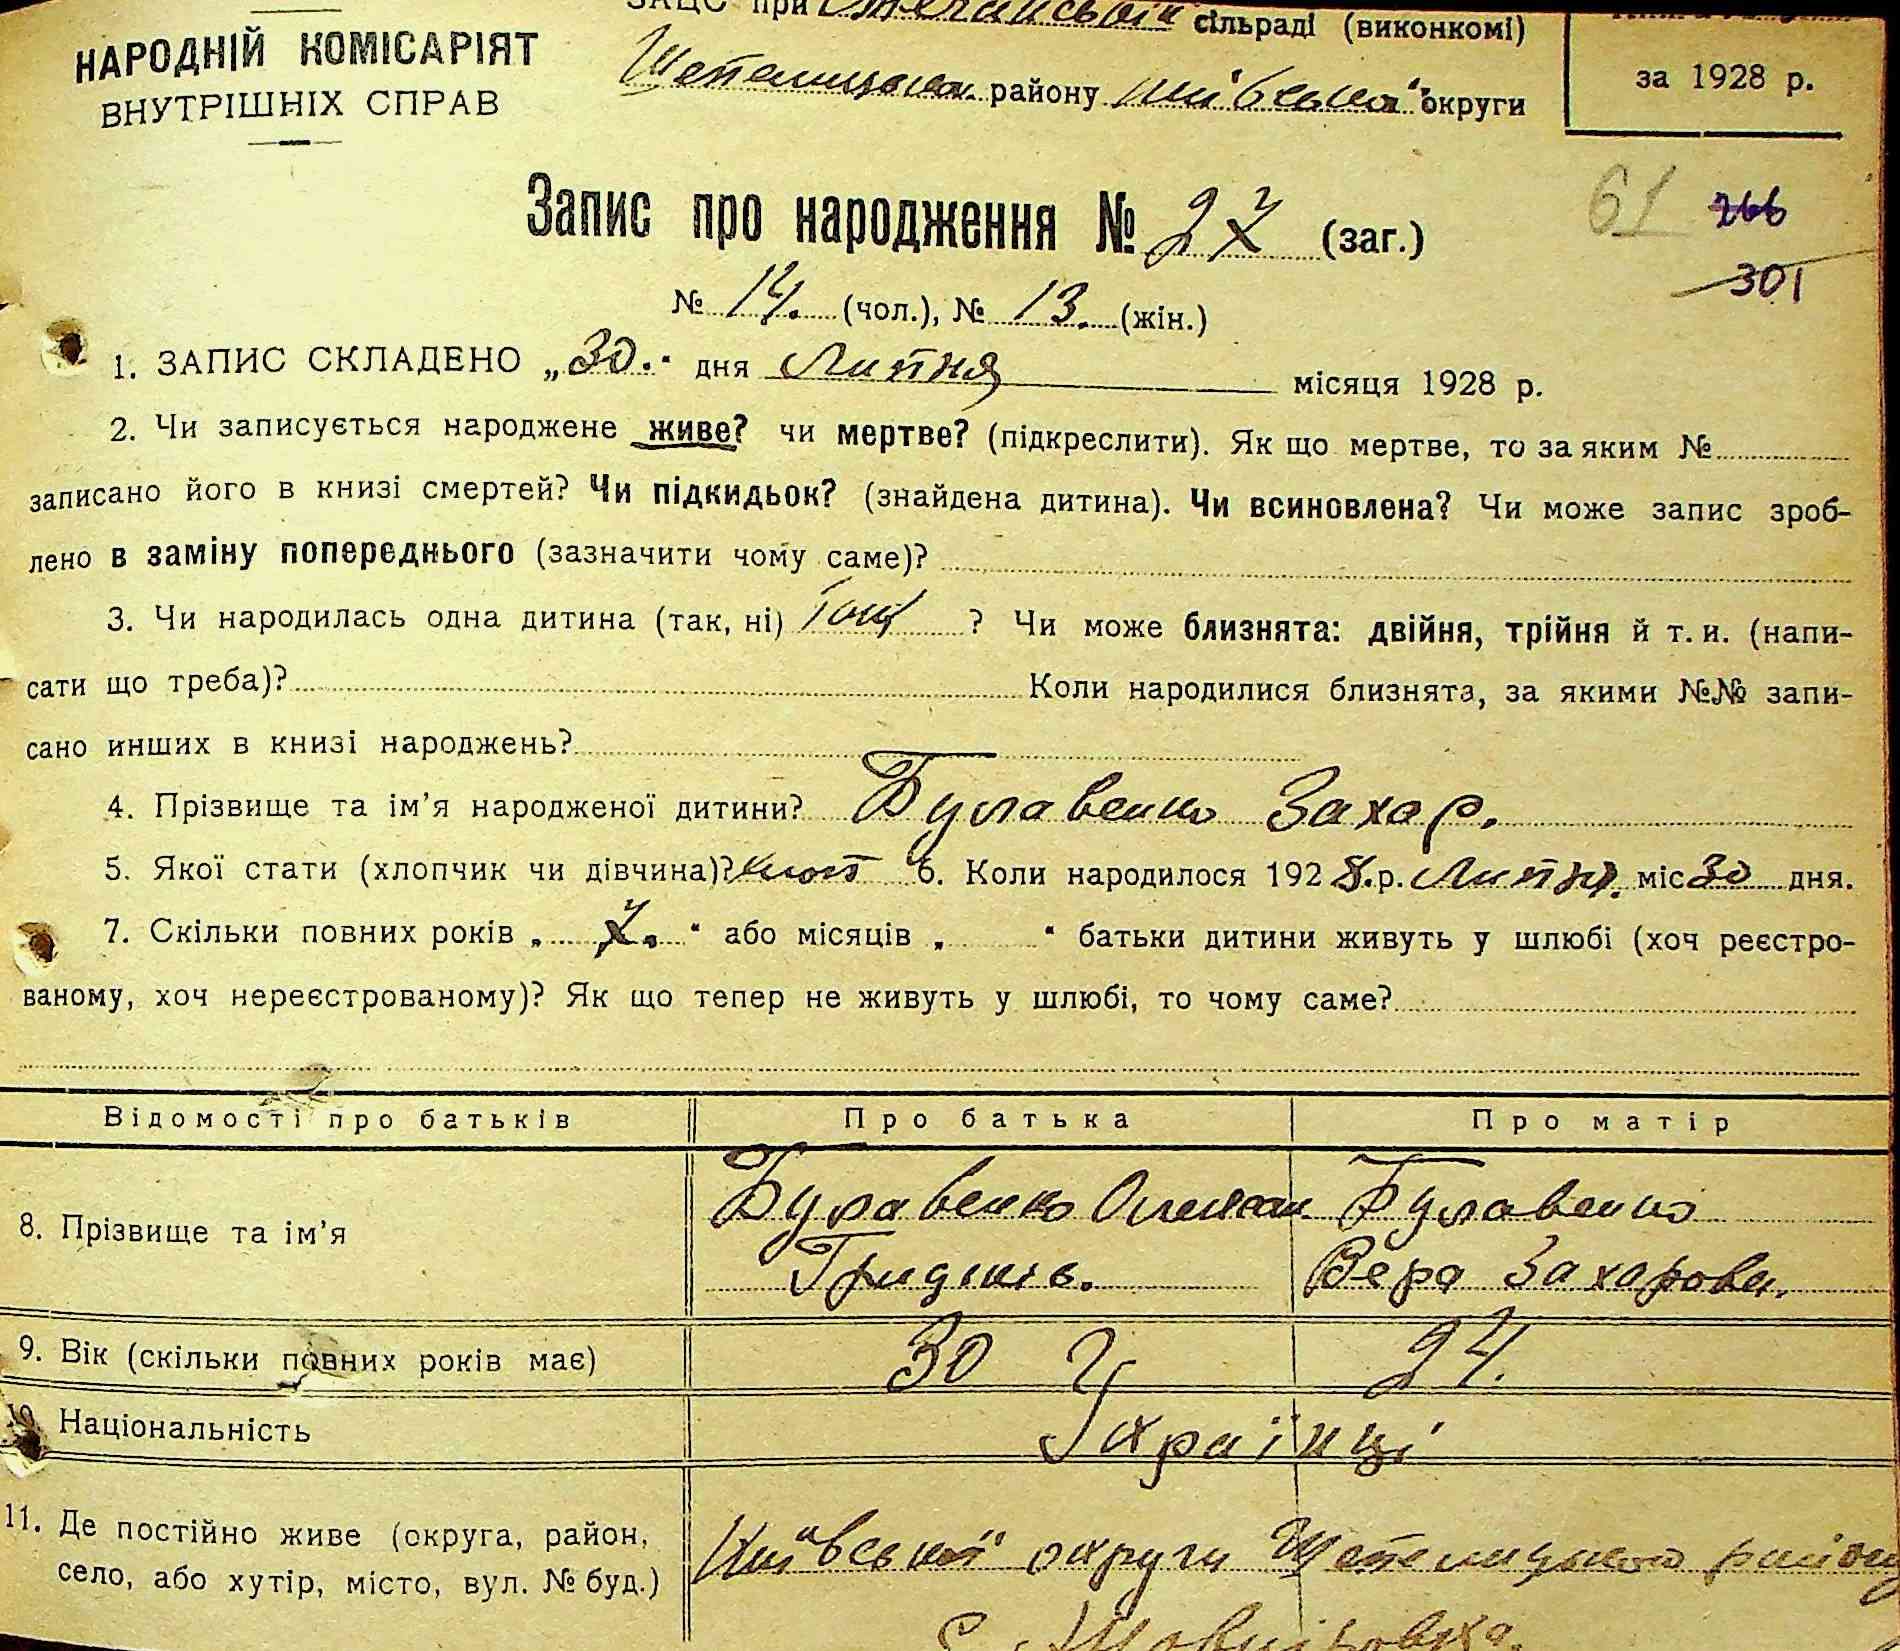 ЗАЦС при сільраді (виконкомі)
НАРОДНІЙ КОМІСАРІЯТ
ВНУТРІШНІХ СПРАВ
Шепелицьк. району Київської округи
за 1928 р.
Запис про народження № 27 (заг.)
61 266
301
№ 14. (чол.), № 13. (жін.)
1. ЗАПИС СКЛАДЕНО „30.“ дня Липня місяця 1928 р.
2. Чи записується народжене живе? чи мертве? (підкреслити). Як що мертве, то за яким №
записано його в книзі смертей? Чи підкидьок? (знайдена дитина). Чи всиновлена? Чи може запис зроб-
лено в заміну попереднього (зазначити чому саме)?
3. Чи народилась одна дитина (так, ні) ? Чи може близнята: двійня, трійня й т. и. (напи-
сати що треба)? Коли народилися близнята, за якими №№ запи-
сано инших в книзі народжень?
4. Прізвище та ім’я народженої дитини? Булавенко Захар.
5. Якої стати (хлопчик чи дівчина)? 6. Коли народилося 1928.р. Липня. міс 30 дня.
7. Скільки повних років „ 7. “ або місяців „ “ батьки дитини живуть у шлюбі (хоч реєстро-
ваному, хоч нереєстрованому)? Як що тепер не живуть у шлюбі, то чому саме?
Відомості про батьків Про батька Про матір
8. Прізвище та ім’я Булавенко Булавенко
Вера Захарова.
9. Вік (скільки повних років має) 30 24.
10 Національність Українці
11. Де постійно живе (округа, район,
село, або хутір, місто, вул. № буд.)
Київської округи Шепелицького району
с.